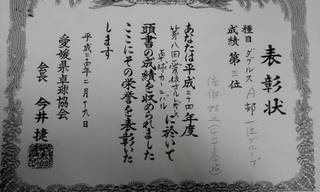 表彰状
種目 ダブルス A部 一位グループ
成績 第三位
あなたは平成二十四年度
第八回愛媛さんさん
卓球カーニバル に於いて
頭書の成績を収められました
ここにその栄誉を表彰いた
します
平成二十五年二月十九日
愛媛県卓球協会
会長 今井 捷